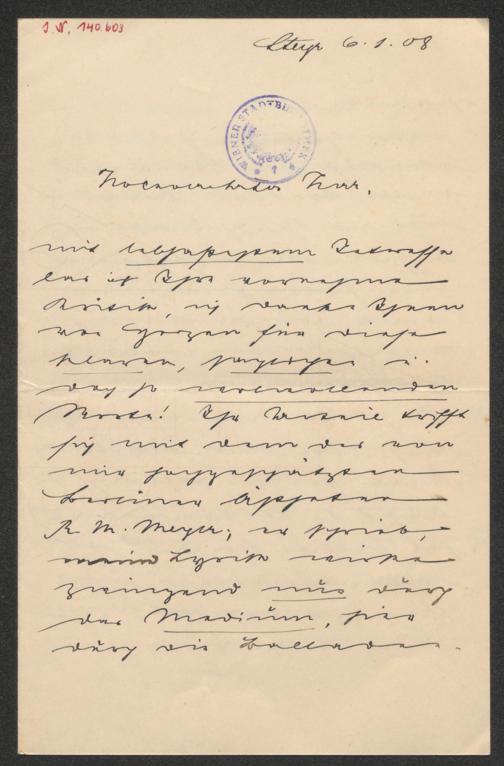 I. N. 140.603
Steyr 6.1.08
WIENER STADTBIBLIOTHEK
Hochverehrter Herr.
mit lebhaftestem Interesse
las ich Ihre vornehme
Kritik, ich danke Ihnen
von Herzen für diese
klaren, u.
doch so wertvollenden
Worte! Ihr Urteil trifft
sich mit dem des von
mir hochgeschätzten
Berliner Ästheten
R. M. Meyer; er schrieb,
meine Lyrik wirke
zwingend nur durch
das Medium, hier
durch die Balladen.